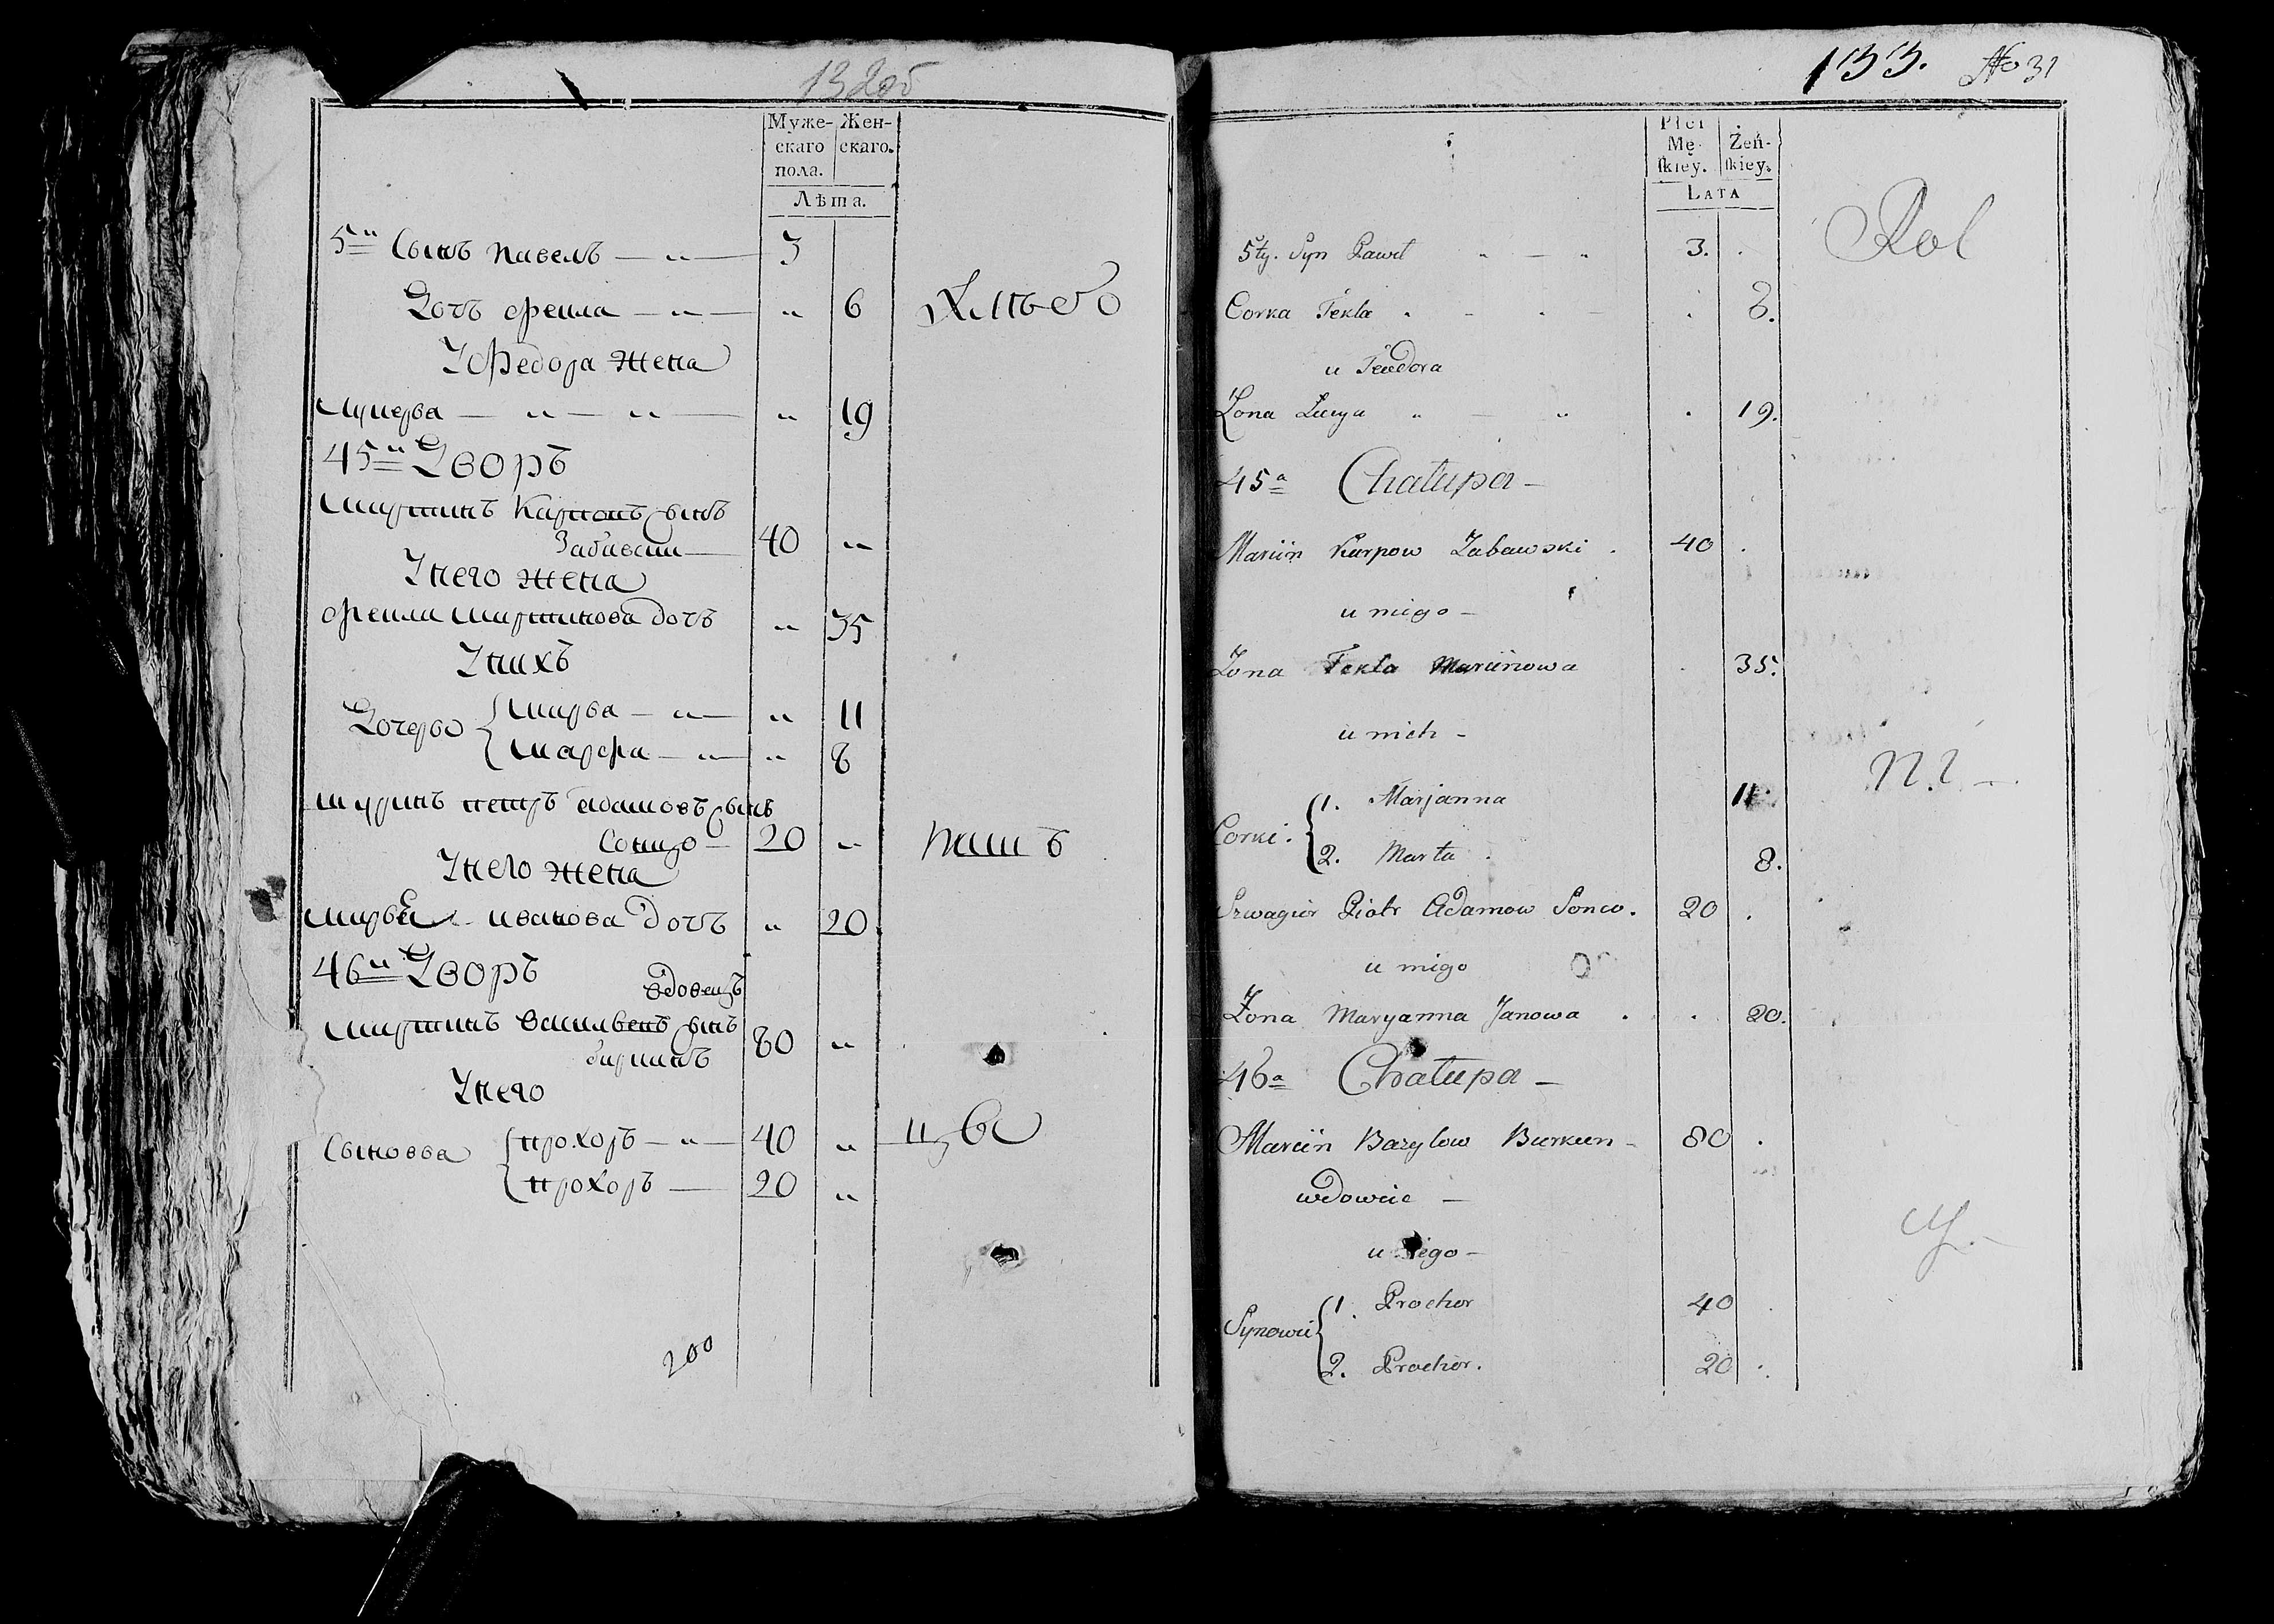 132об
Муже-
скаго
пола.
Жен-
скаго.
Лѣта.
5й Сынъ павелъ 3
Дочь фекла 6
У Федора жена
19
45й Дворъ
Мартинъ Карповъ сынъ
Забавски 40
У него жена
Фекла мартинова дочь 35
У нихъ
Дочеры Марья 11
Марфа 8
Шуринъ петръ адамовъ сынъ
20
У него жена
Марья иванова дочь 20
46й Дворъ
вдовецъ
Мартинъ Васильевъ сынъ
80
У него
Сыновья прохоръ 40
прохоръ 20
200
133. No 31
Płci
Mę-
skiey.
Żeń-
skiey.
LATA
Rol
5ty. Syn Paweł 3.
Corka Tekla
u Teodora
Żona 19.
45a Chałupa
Marcin Karpow Zabawski 40
u niego
Żona Tekla Marcinowa 35.
u nich
Corki. 1. Marjanna 11
2. Marta 8.
Szwagier Piotr Adamow 20
u niego
Żona Maryanna Janowa 20.
46a Chałupa
Marcin Bazylow 80
wdowiec
u niego
Synowie 1. Prochor 40
2. Prochor. 20